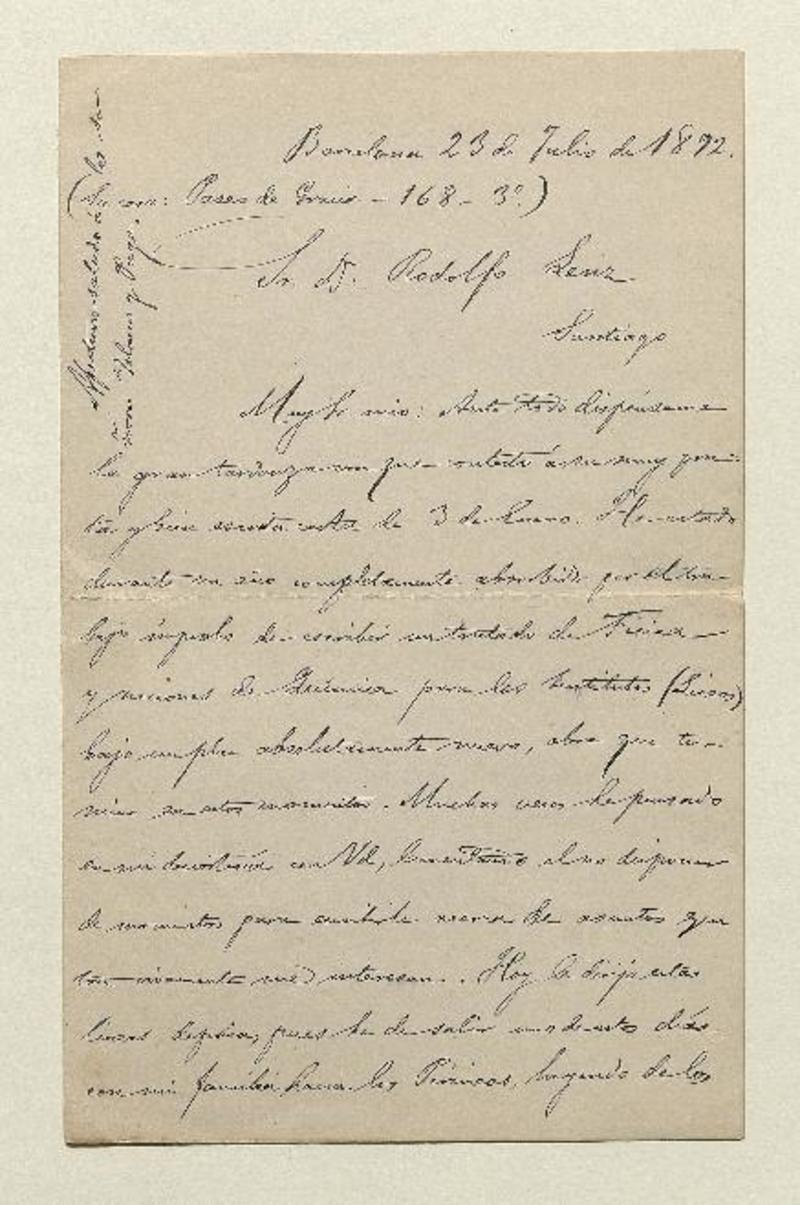 Barcelona 23 de Julio de 1892.
(Su casa: Paseo de Gracia - 168 - 3º.)
Sr. D. Rodolfo Lenz
Santiago
Muy Sr mio: Ante todo dispénseme
la gran tardanza con que contesto á su muy
y bien escrita carta de 3 de Enero. He estado
durante un año completamente absorbido por el tra-
bajo ímprobo de escribir un tratado de Física
y nociones de Química para los Institutos (Liceos)
bajo un plan absolutamente nuevo, obra que ter-
mino en estos momentos. Muchas veces he pensado
en mi descortesía con Vd, lamentando el no disponer
de momentos para escribirle acerca de asuntos que
tan vivamente me interesan. Hoy le dirijo estas
líneas deprisa, pues he de salir uno de estos días
con mi familia hacia los Pirineos, huyendo de los
saludo á los se-
ñores y Puga.